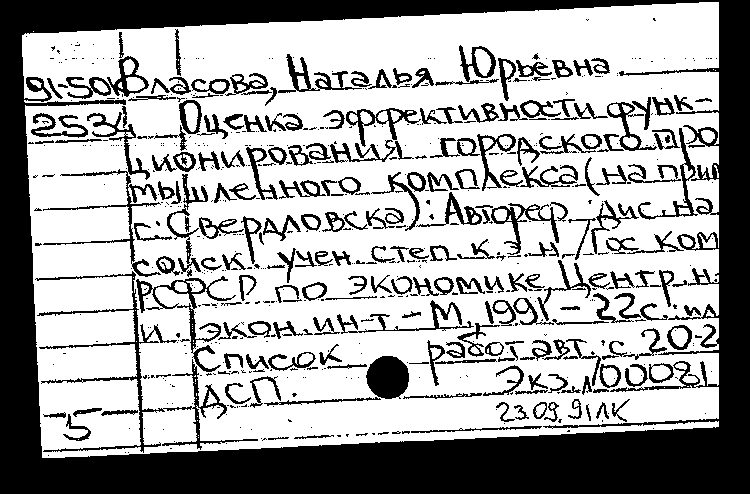 91-50к Власова, Наталья Юрьевна.
2534 Оценка эффективности функ-
ционирования городского про
мышленного комплекса (на прим
г. Свердловска): Автореф. дис. на
соиск. учен. степ. к.э.н. /Гос ком
РСФСР по экономике, Центр. н.-
и. экон. ин-т. - М., 1991. - 22 с.: ил
Список работ авт.: с. 20-2
ДСП. Экз. №00081
5 23.09.91 ЛК